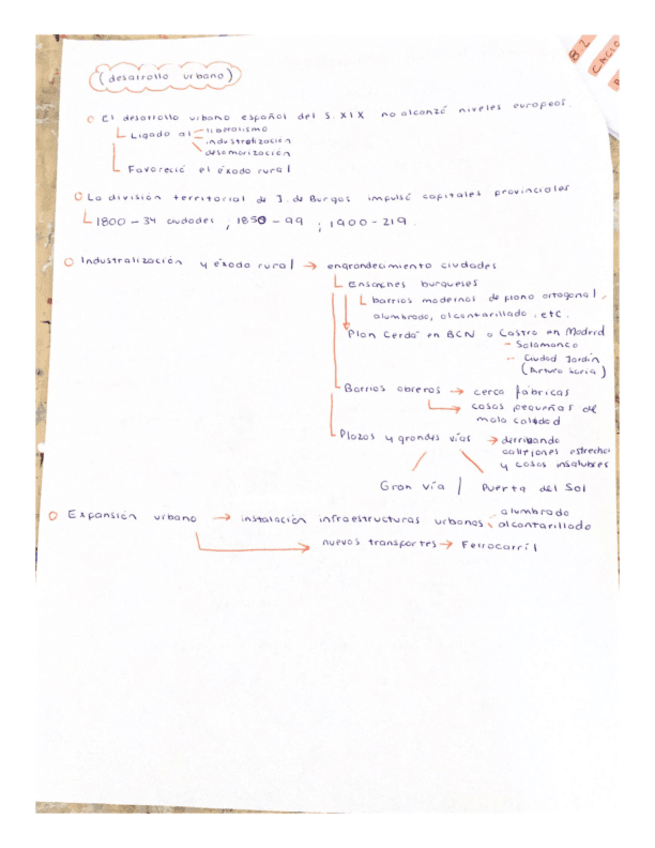 (desarrollo urbano)
B.2
El desarrollo urbano español del S.XIX no alcanzó niveles europeos.
Ligado al liberalismo
industrialización
desamorización
Favoreció el éxodo rural
La división territorial de J. de Burgos impulsó capitales provinciales
1800 - 34 ciudades ; 1850 - 99 ; 1900 - 219.
Industralización y éxodo rural → engrandecimiento ciudades
Ensanches burgueses
barrios modernos de plano ortogonal,
alumbrado, alcantarillado, etc.
Plan Cerdá en BCN o Castro en Madrid
- Salamanca
- Ciudad Jardín
(Arturo Soria)
Barrios obreros → cerca fábricas
casas pequeñas de
mala calidad
Plazas y grandes vías → derribando
callejones estrechos
y casas insalubres
Gran Vía / Puerta del Sol
Expansión urbana → instalación infraestructuras urbanas alumbrado
alcantarillado
nuevos transportes → Ferrocarril